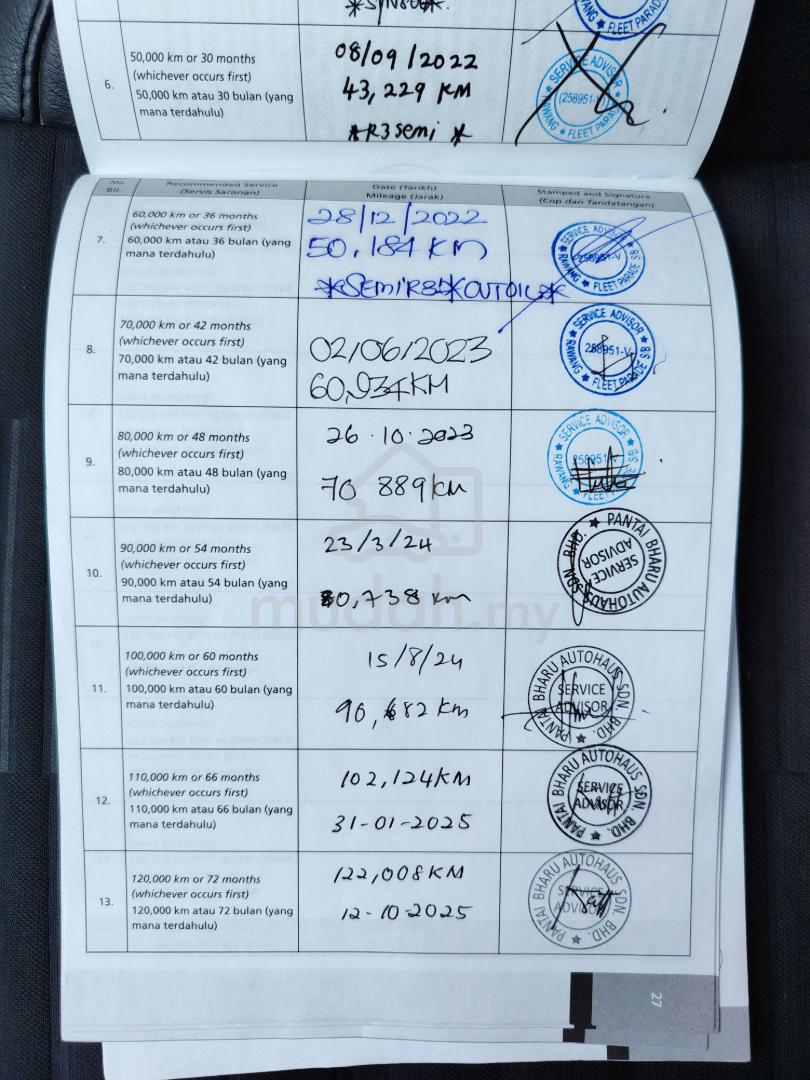 6.
50,000 km or 30 months
(whichever occurs first)
50,000 km atau 30 bulan (yang
mana terdahulu)
08/09/2022
43,229 KM
*R3 semi *
SERVICE ADVISOR
(258951-V)
RAWANG ★ FLEET PARADE
FLEET PARADE
No.
Bil.
Recommended Service
(Servis Saranan)
Date (Tarikh)
Mileage (Jarak)
Stamped and Signature
(Cop dan Tandatangan)
7.
60,000 km or 36 months
(whichever occurs first)
60,000 km atau 36 bulan (yang
mana terdahulu)
28/12/2022
50,184 KM
SERVICE ADVISOR
258951-V
RAWANG ★ FLEET PARADE BS
8.
70,000 km or 42 months
(whichever occurs first)
70,000 km atau 42 bulan (yang
mana terdahulu)
02/06/2023
60,934KM
SERVICE ADVISOR
258951-V
RAWANG ★ FLEET PARADE BS
9.
80,000 km or 48 months
(whichever occurs first)
80,000 km atau 48 bulan (yang
mana terdahulu)
26.10.2023
70 889km
SERVICE ADVISOR
258951-V
RAWANG ★ FLEET PARADE BS
10.
90,000 km or 54 months
(whichever occurs first)
90,000 km atau 54 bulan (yang
mana terdahulu)
23/3/24
80,738 km
★ PANTAI BHARU AUTOHAUS SDN. BHD.
SERVICE
ADVISOR
mudah.my
11.
100,000 km or 60 months
(whichever occurs first)
100,000 km atau 60 bulan (yang
mana terdahulu)
15/8/24
90,682 km
★ PANTAI BHARU AUTOHAUS SDN. BHD.
SERVICE
ADVISOR
12.
110,000 km or 66 months
(whichever occurs first)
110,000 km atau 66 bulan (yang
mana terdahulu)
102,124KM
31-01-2025
★ PANTAI BHARU AUTOHAUS SDN. BHD.
SERVICE
ADVISOR
13.
120,000 km or 72 months
(whichever occurs first)
120,000 km atau 72 bulan (yang
mana terdahulu)
122,008KM
12-10-2025
★ PANTAI BHARU AUTOHAUS SDN. BHD.
SERVICE
ADVISOR
27